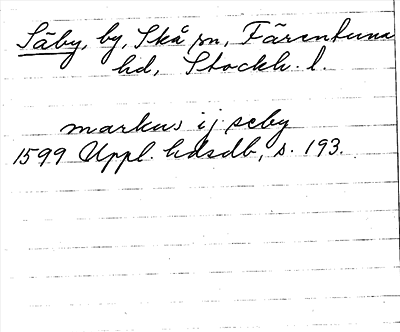 Säby, by, Skå sn, Färentuna
hd, Stockh. l.
markus ij seby
1599 Uppl. hdsdb, s. 193.